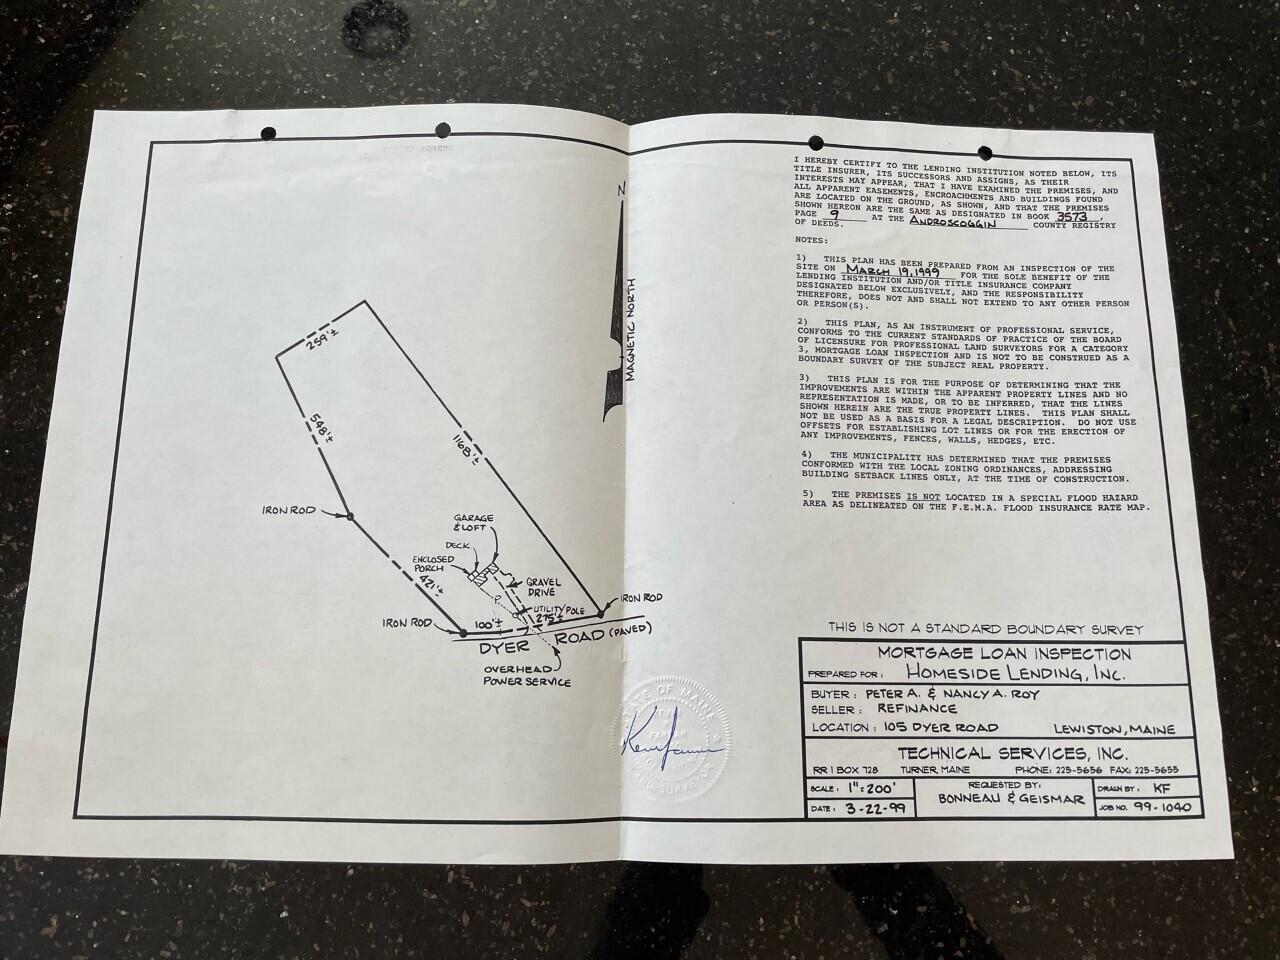 I HEREBY CERTIFY TO THE LENDING INSTITUTION NOTED BELOW, ITS
TITLE INSURER, ITS SUCCESSORS AND ASSIGNS, AS THEIR
INTERESTS MAY APPEAR, THAT I HAVE EXAMINED THE PREMISES, AND
ALL APPARENT EASEMENTS, ENCROACHMENTS AND BUILDINGS FOUND
ARE LOCATED ON THE GROUND, AS SHOWN, AND THAT THE PREMISES
SHOWN HEREON ARE THE SAME AS DESIGNATED IN BOOK 3573,
PAGE 9 AT THE ANDROSCOGGIN COUNTY REGISTRY
OF DEEDS.
NOTES:
1) THIS PLAN HAS BEEN PREPARED FROM AN INSPECTION OF THE
SITE ON MARCH 19, 1999 FOR THE SOLE BENEFIT OF THE
LENDING INSTITUTION AND/OR TITLE INSURANCE COMPANY
DESIGNATED BELOW EXCLUSIVELY, AND THE RESPONSIBILITY
THEREFORE, DOES NOT AND SHALL NOT EXTEND TO ANY OTHER PERSON
OR PERSON(S).
2) THIS PLAN, AS AN INSTRUMENT OF PROFESSIONAL SERVICE,
CONFORMS TO THE CURRENT STANDARDS OF PRACTICE OF THE BOARD
OF LICENSURE FOR PROFESSIONAL LAND SURVEYORS FOR A CATEGORY
3, MORTGAGE LOAN INSPECTION AND IS NOT TO BE CONSTRUED AS A
BOUNDARY SURVEY OF THE SUBJECT REAL PROPERTY.
3) THIS PLAN IS FOR THE PURPOSE OF DETERMINING THAT THE
IMPROVEMENTS ARE WITHIN THE APPARENT PROPERTY LINES AND NO
REPRESENTATION IS MADE, OR TO BE INFERRED, THAT THE LINES
SHOWN HEREIN ARE THE TRUE PROPERTY LINES. THIS PLAN SHALL
NOT BE USED AS A BASIS FOR A LEGAL DESCRIPTION. DO NOT USE
OFFSETS FOR ESTABLISHING LOT LINES OR FOR THE ERECTION OF
ANY IMPROVEMENTS, FENCES, WALLS, HEDGES, ETC.
4) THE MUNICIPALITY HAS DETERMINED THAT THE PREMISES
CONFORMED WITH THE LOCAL ZONING ORDINANCES, ADDRESSING
BUILDING SETBACK LINES ONLY, AT THE TIME OF CONSTRUCTION.
5) THE PREMISES IS NOT LOCATED IN A SPECIAL FLOOD HAZARD
AREA AS DELINEATED ON THE F.E.M.A. FLOOD INSURANCE RATE MAP.
N
MAGNETIC NORTH
259'±
548'±
1168'±
IRON ROD
GARAGE
& LOFT
DECK
ENCLOSED
PORCH
421'±
GRAVEL
DRIVE
P
UTILITY POLE
IRON ROD
IRON ROD
100'±
275'±
DYER ROAD (PAVED)
OVERHEAD
POWER SERVICE
STATE OF MAINE
THIS IS NOT A STANDARD BOUNDARY SURVEY
MORTGAGE LOAN INSPECTION
PREPARED FOR: HOMESIDE LENDING, INC.
BUYER: PETER A. & NANCY A. ROY
SELLER: REFINANCE
LOCATION: 105 DYER ROAD LEWISTON, MAINE
TECHNICAL SERVICES, INC.
RR 1 BOX 728 TURNER, MAINE PHONE: 225-5656 FAX: 225-5655
SCALE: 1"=200'
REQUESTED BY:
BONNEAU & GEISMAR
DRAWN BY: KF
DATE: 3-22-99
JOB NO. 99-1040